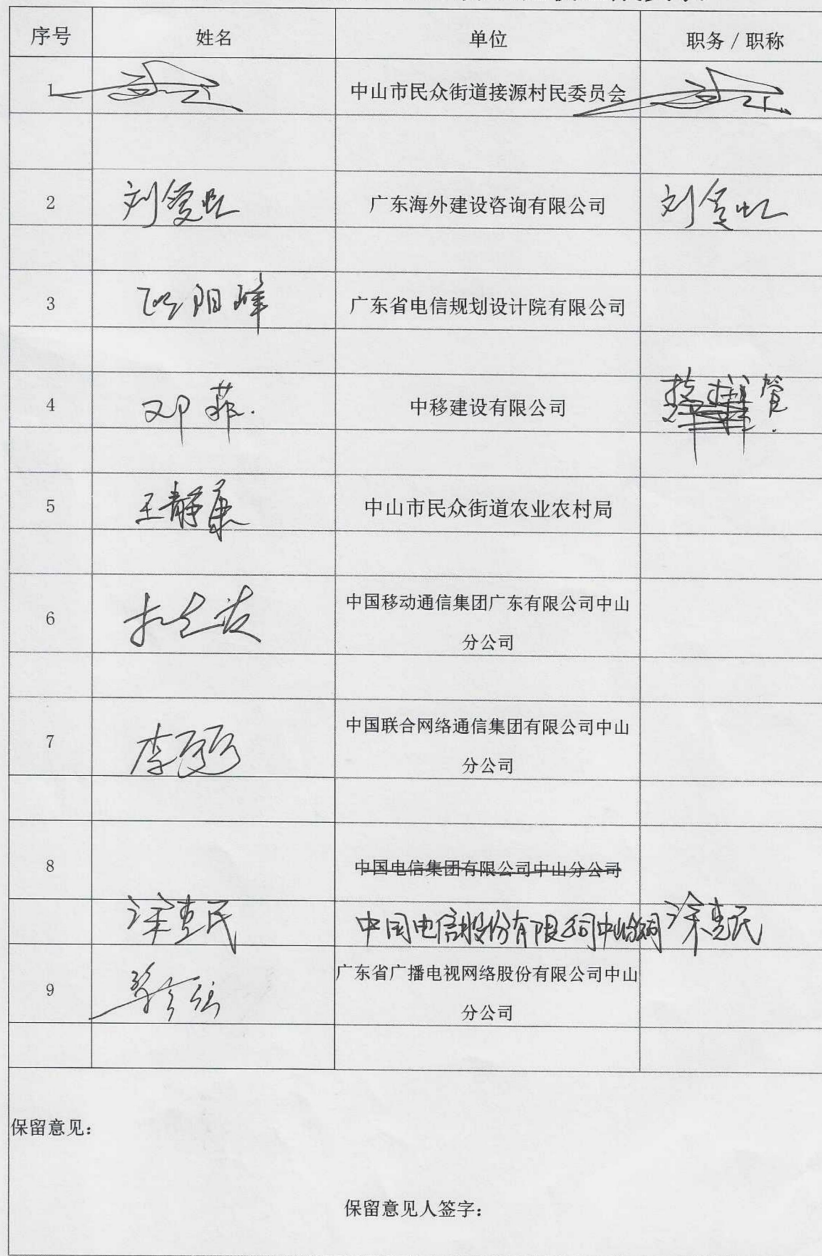 序号 姓名 单位 职务/职称
1 中山市民众街道接源村民委员会
2 刘爱虹 广东海外建设咨询有限公司 刘爱虹
3 欧阳峰 广东省电信规划设计院有限公司
4 邓菲. 中移建设有限公司
5 王静康 中山市民众街道农业农村局
6 中国移动通信集团广东有限公司中山
分公司
7 中国联合网络通信集团有限公司中山
分公司
8 中国电信集团有限公司中山分公司
涂惠民 中国电信股份有限公司中山分公司 涂惠民
9 广东省广播电视网络股份有限公司中山
分公司
保留意见：
保留意见人签字：